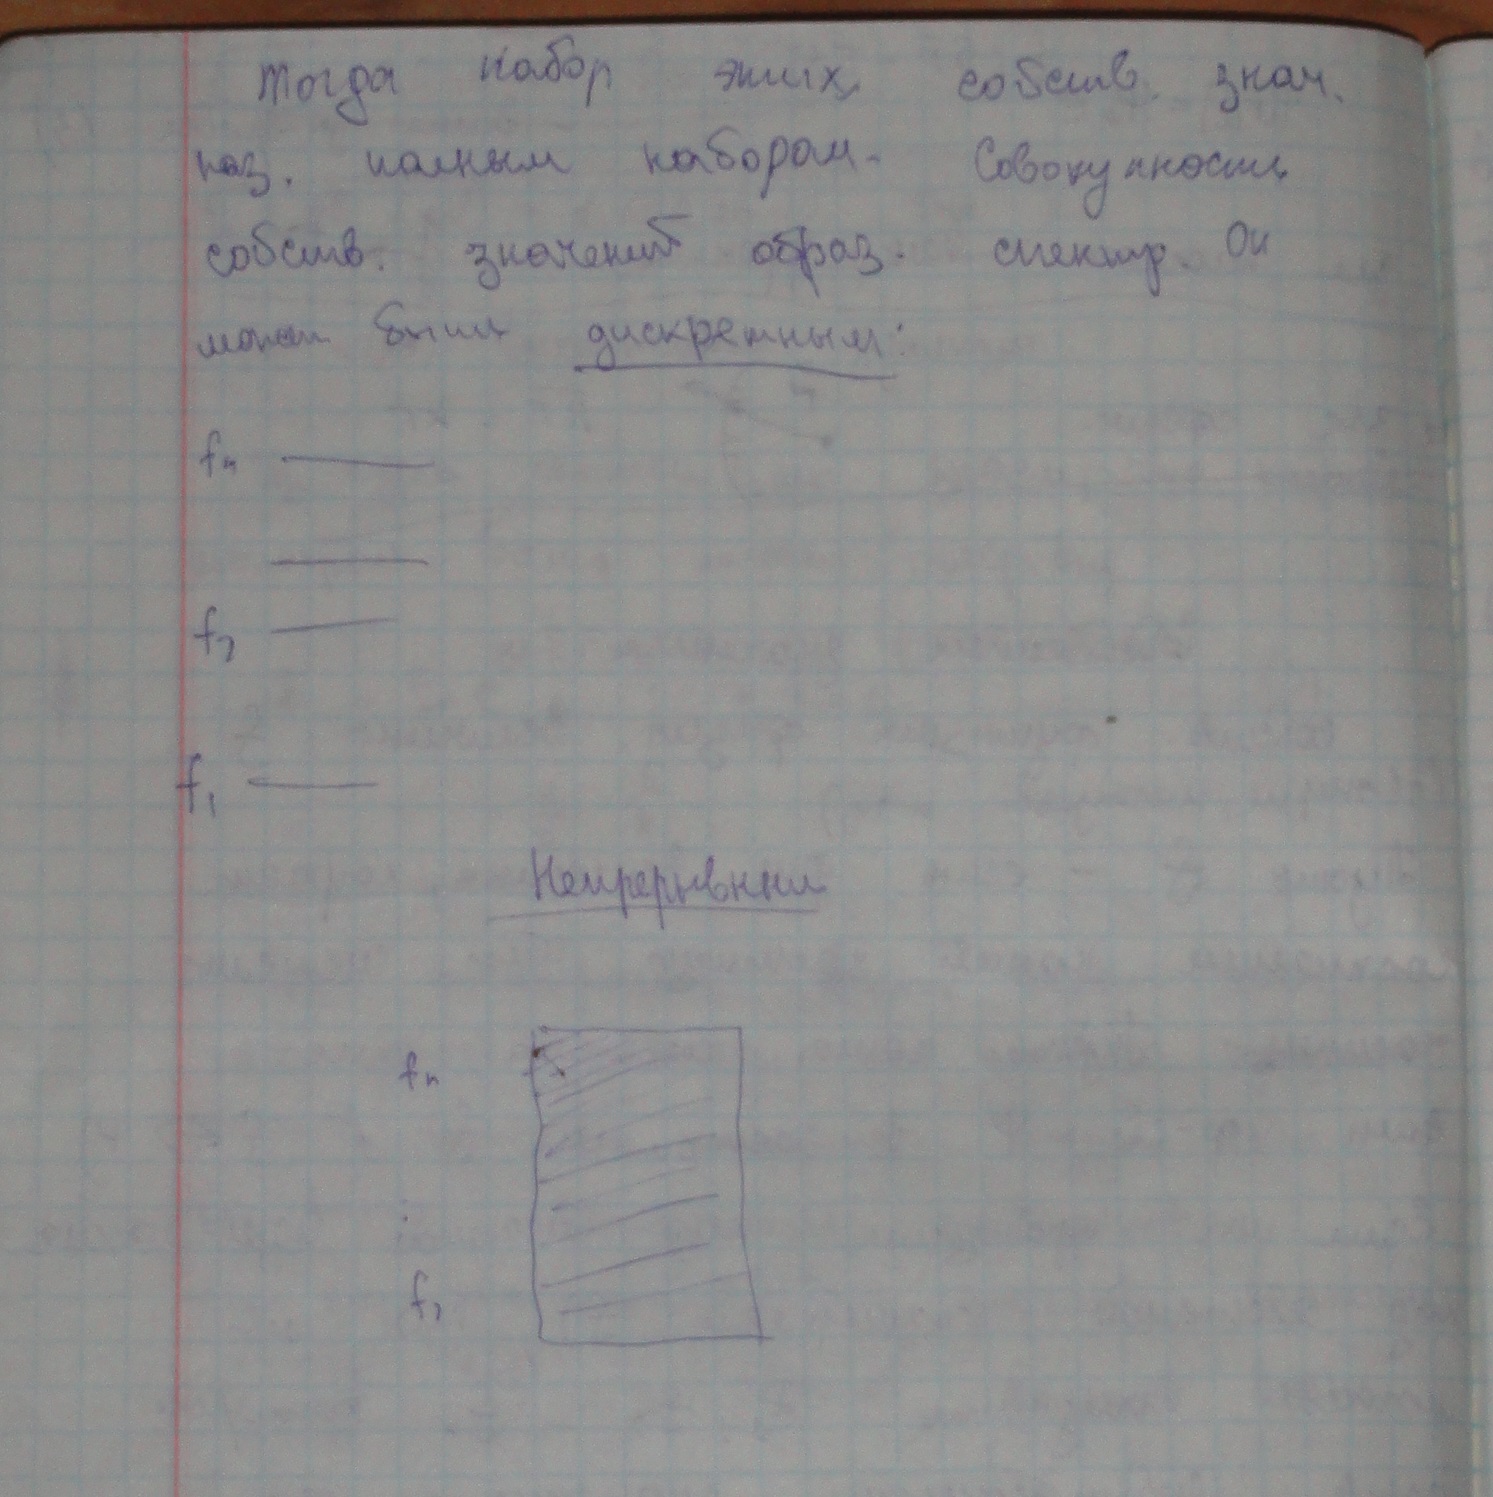 Тогда набор этих собств. знач.
наз. полным набором. Совокупность
собств. значений образ. спектр. Он
может быть дискретным:
fn
f2
f1
Непрерывным
fn
f1